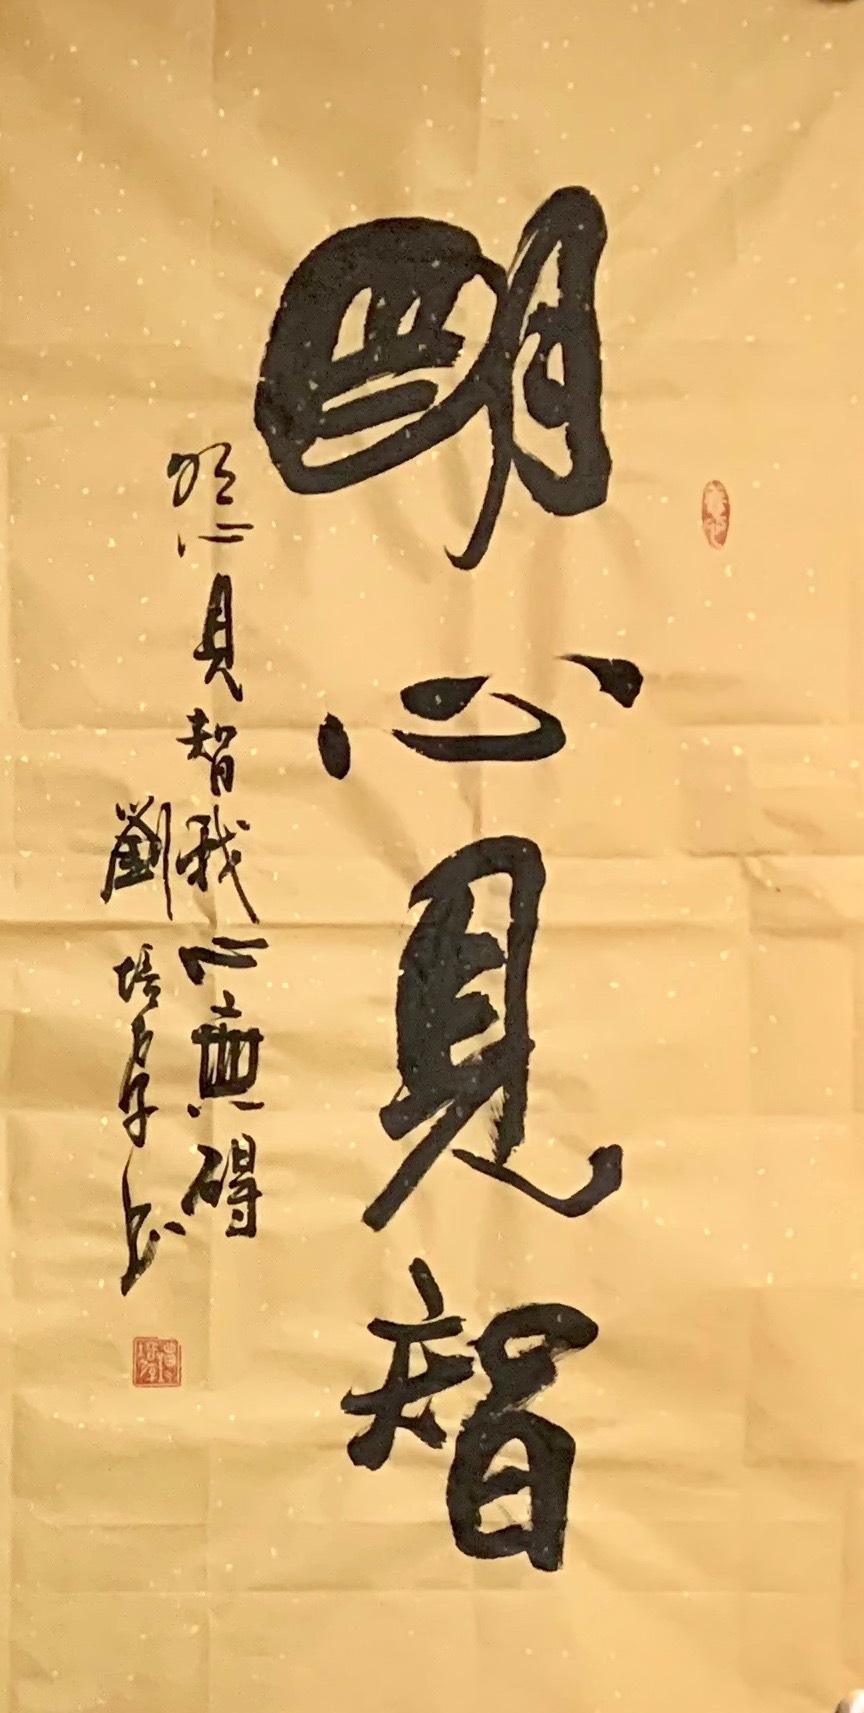 明心見智
明心見智我心無礙
劉培厚书